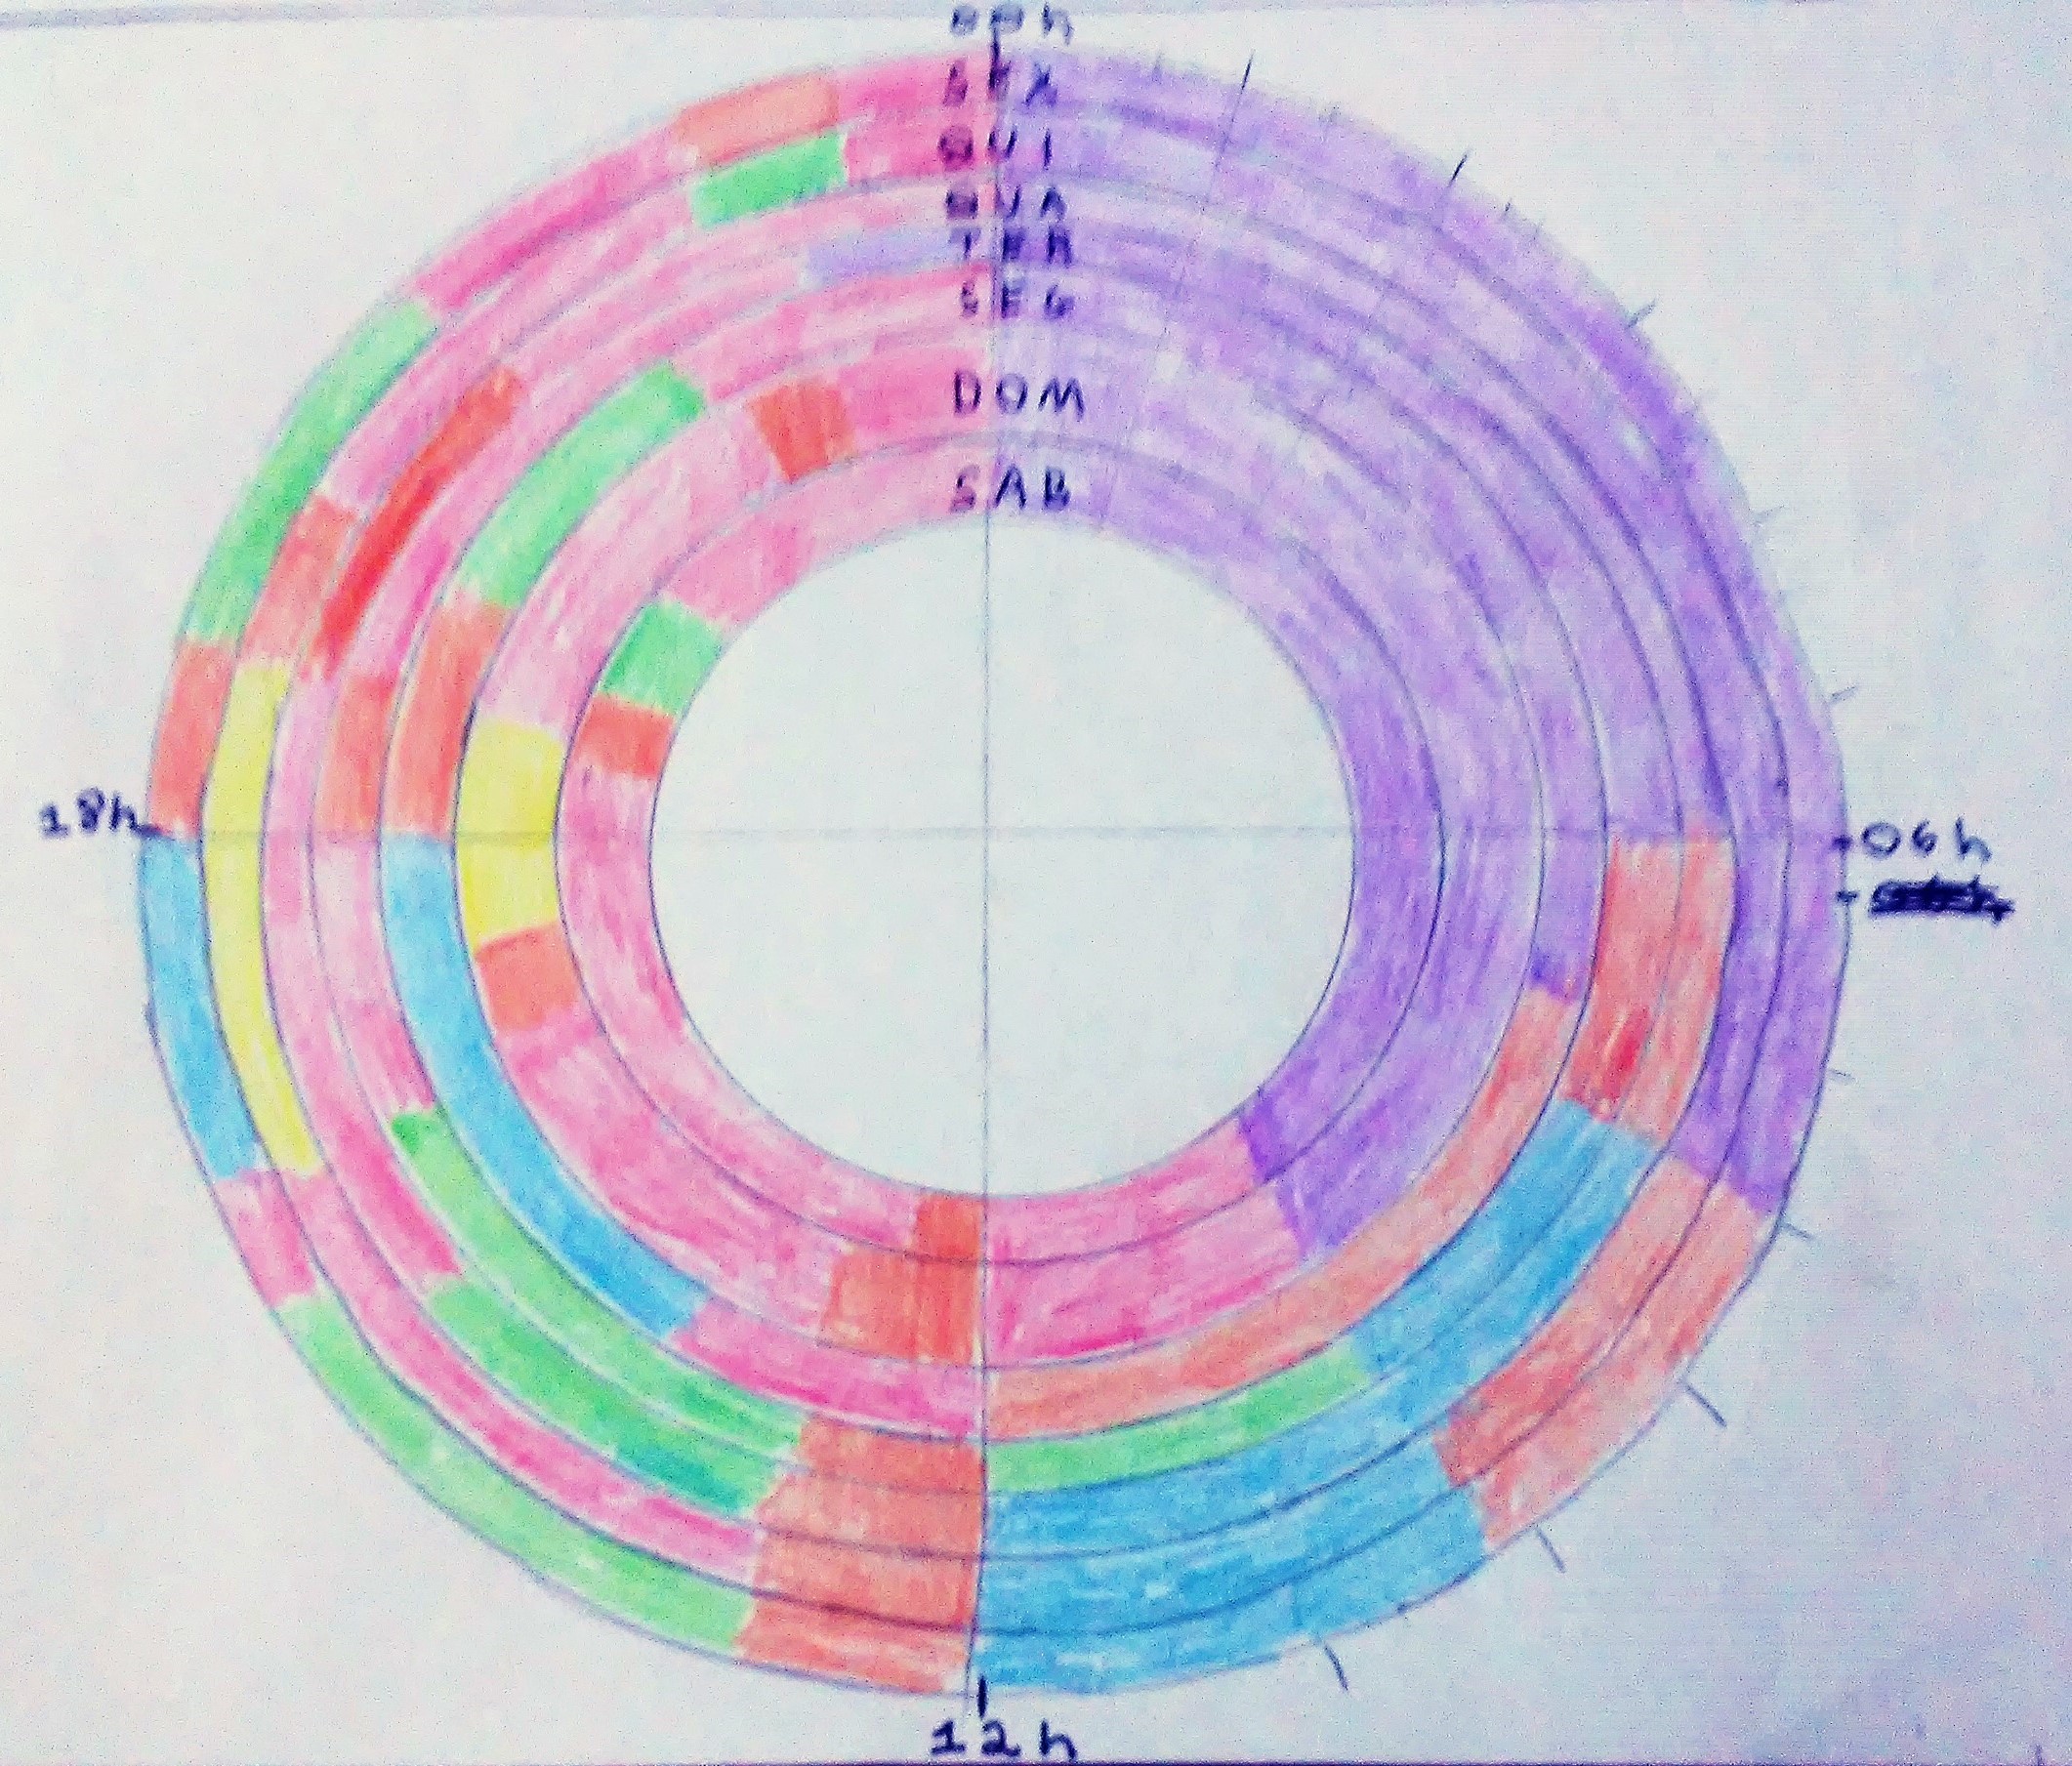 00h
SEX
QUI
QUA
TER
SEG
DOM
SAB
18h
06h
12h